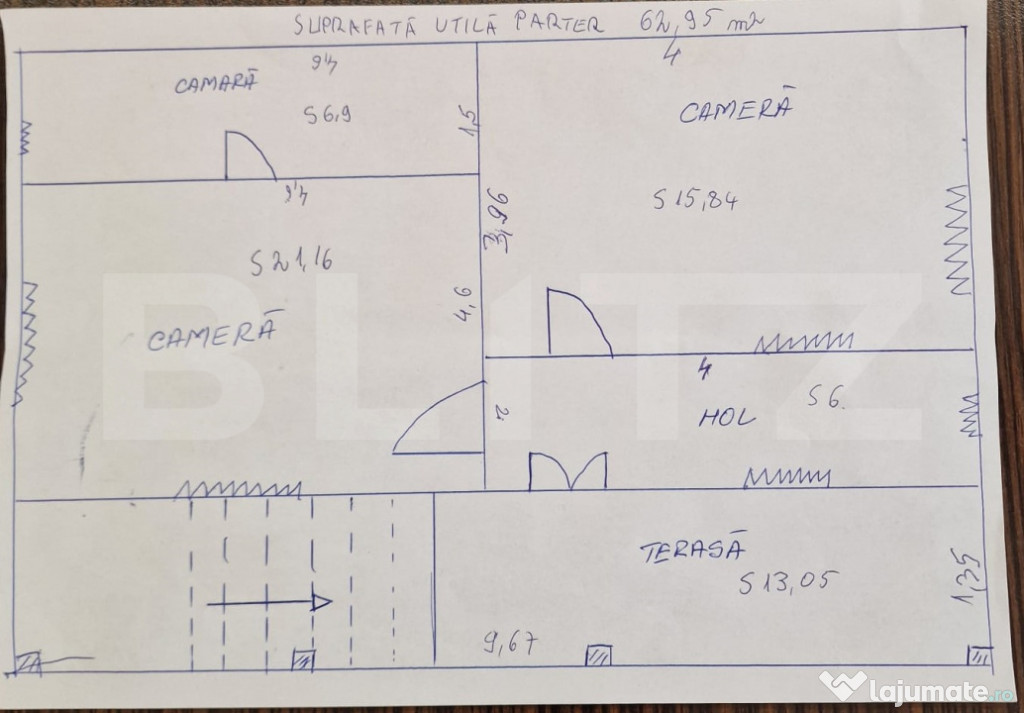 SUPRAFAŢĂ UTILĂ PARTER 62,95 m2
4,6
4
CAMARĂ
S 6,9
1,5
CAMERĂ
4,6
3,96
S 15,84
S 21,16
4,6
CAMERĂ
BLITZ
4
2
HOL
S 6
TERASĂ
S 13,05
1,35
9,67
lajumate.ro